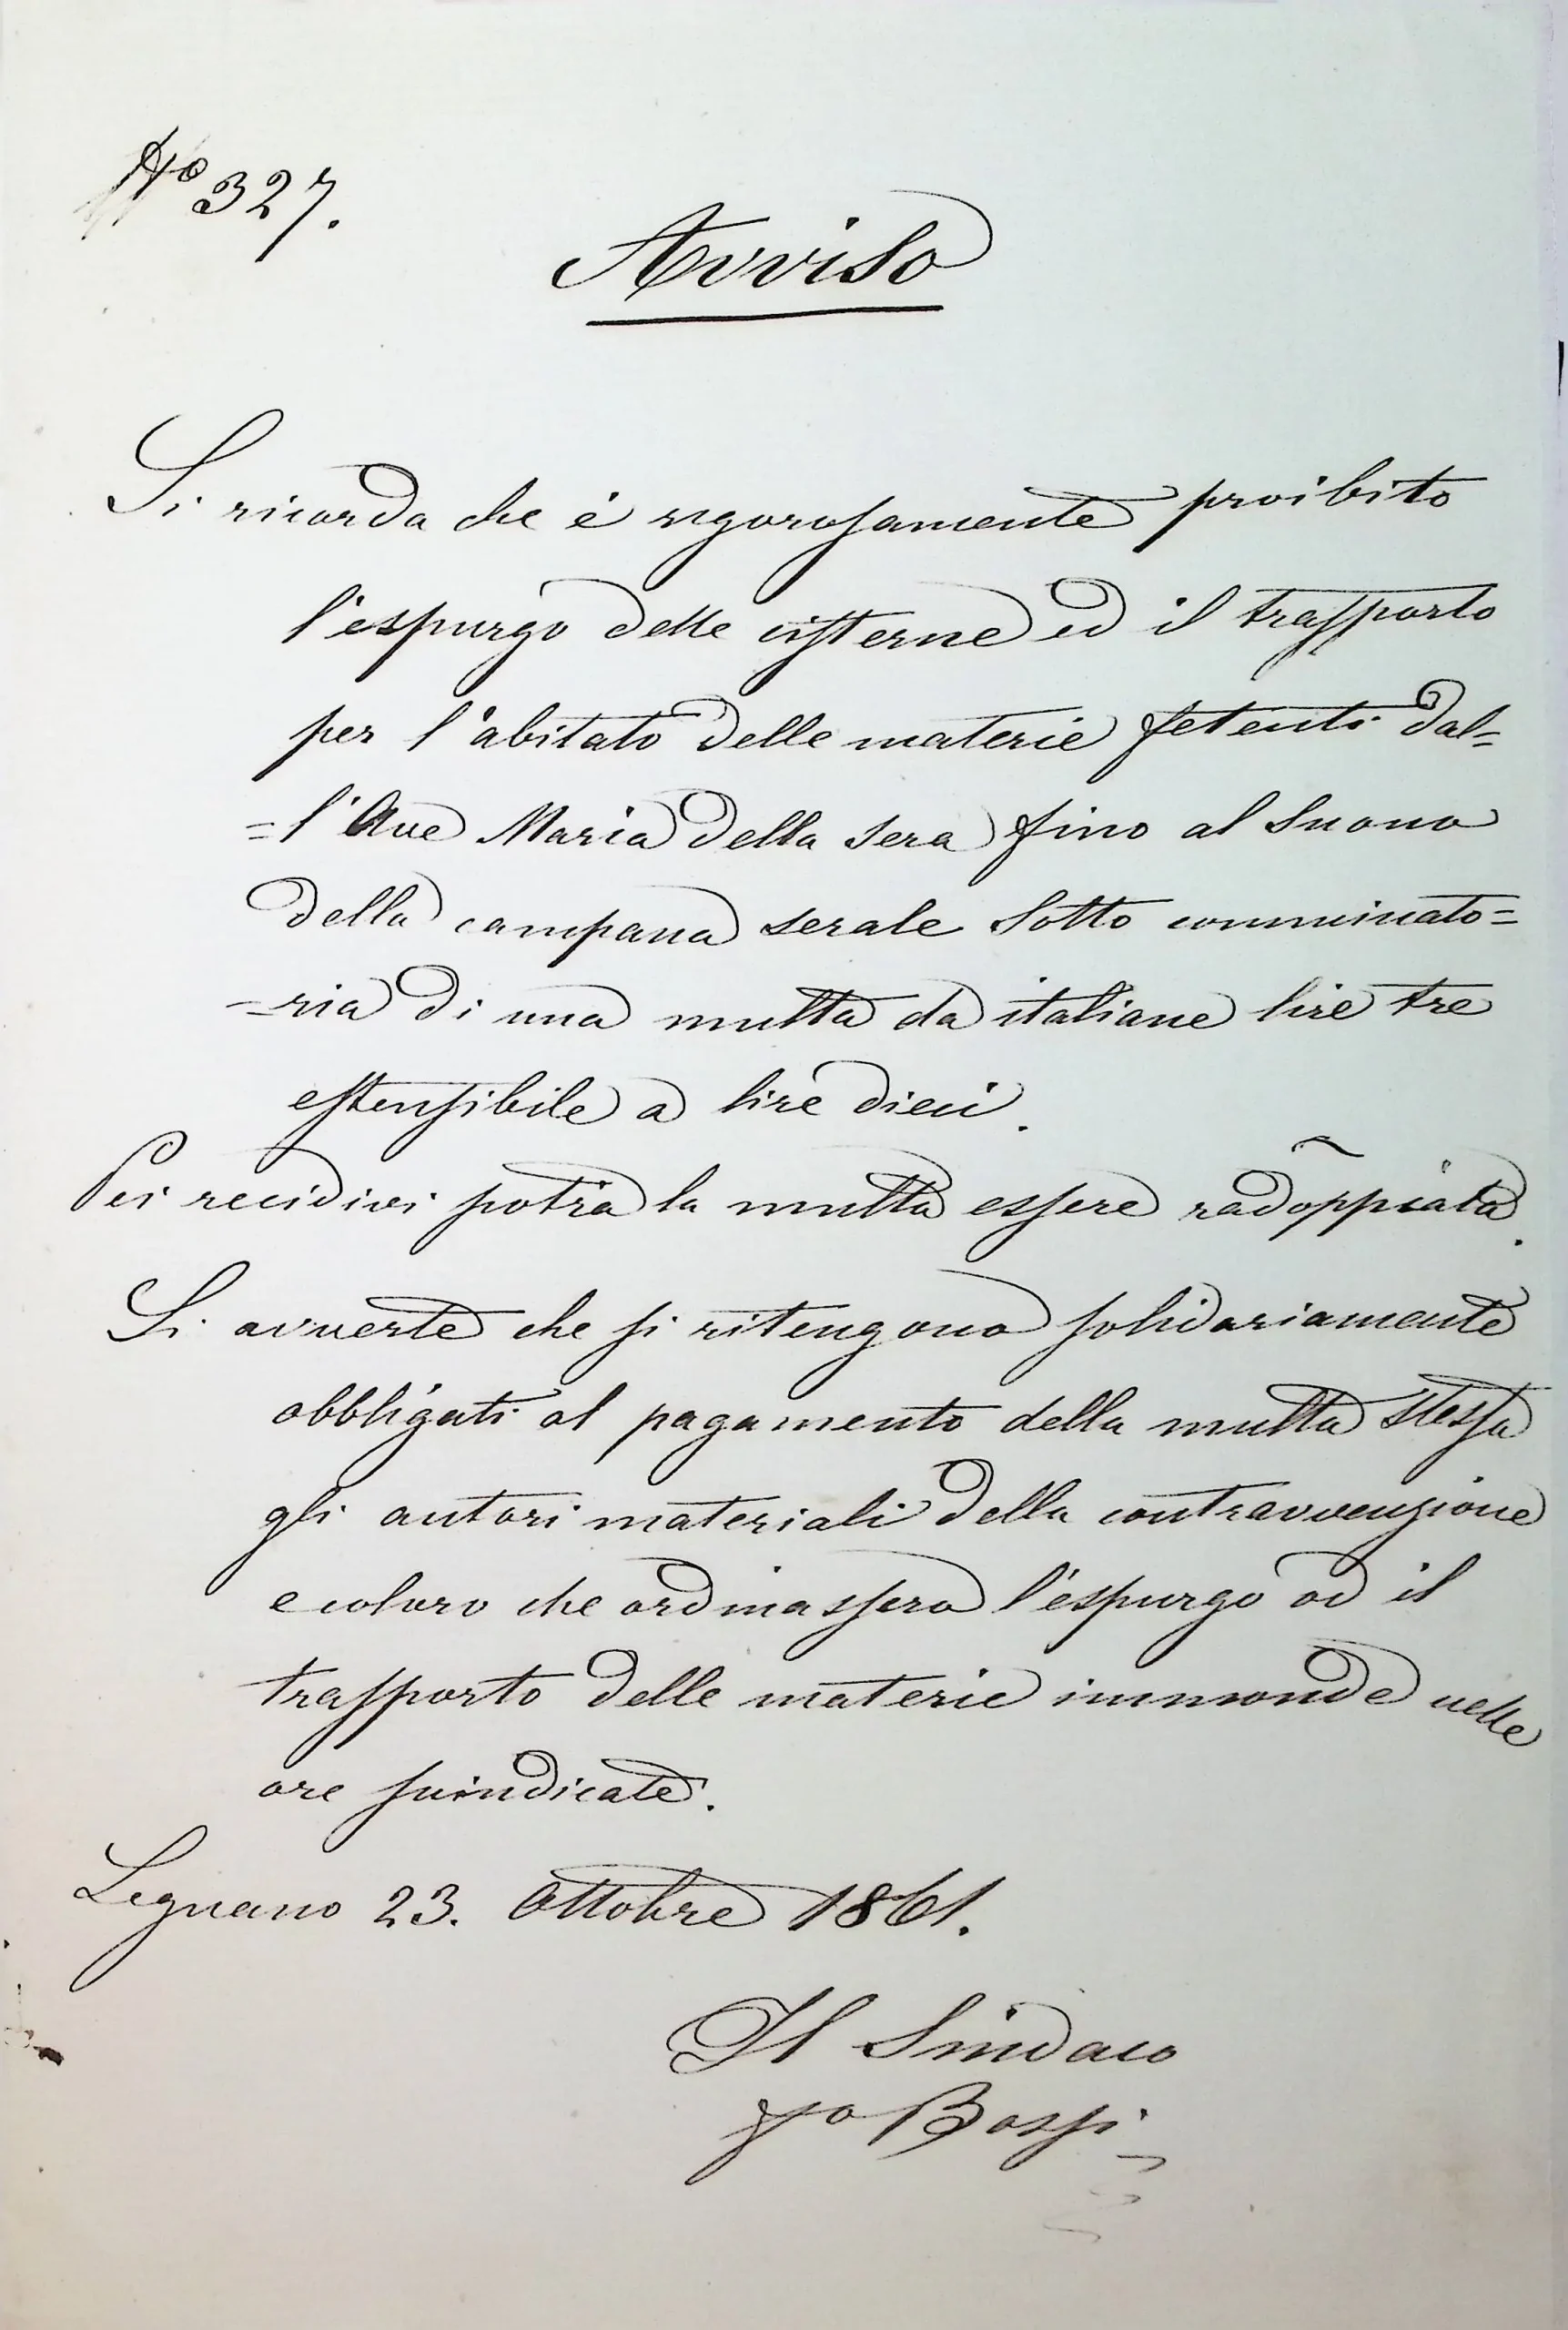 No 327.
Avviso
Si ricorda che è rigorosamente proibito
l'espurgo delle cisterne ed il trasporto
per l'abitato delle materie fetenti dal=
=l'Ave Maria della sera fino al suono
della campana serale sotto comminato=
=ria di una multa da italiane lire tre
estensibile a lire dieci.
Pei recidivi potrà la multa essere radoppiata.
Si avverte che si ritengono solidariamente
obbligati al pagamento della multa stessa
gli autori materiali della contravvenzione
e coloro che ordinassero l'espurgo od il
trasporto delle materie immonde nelle
ore suindicate.
Legnano 23. Ottobre 1861.
Il Sindaco
fo Bossi